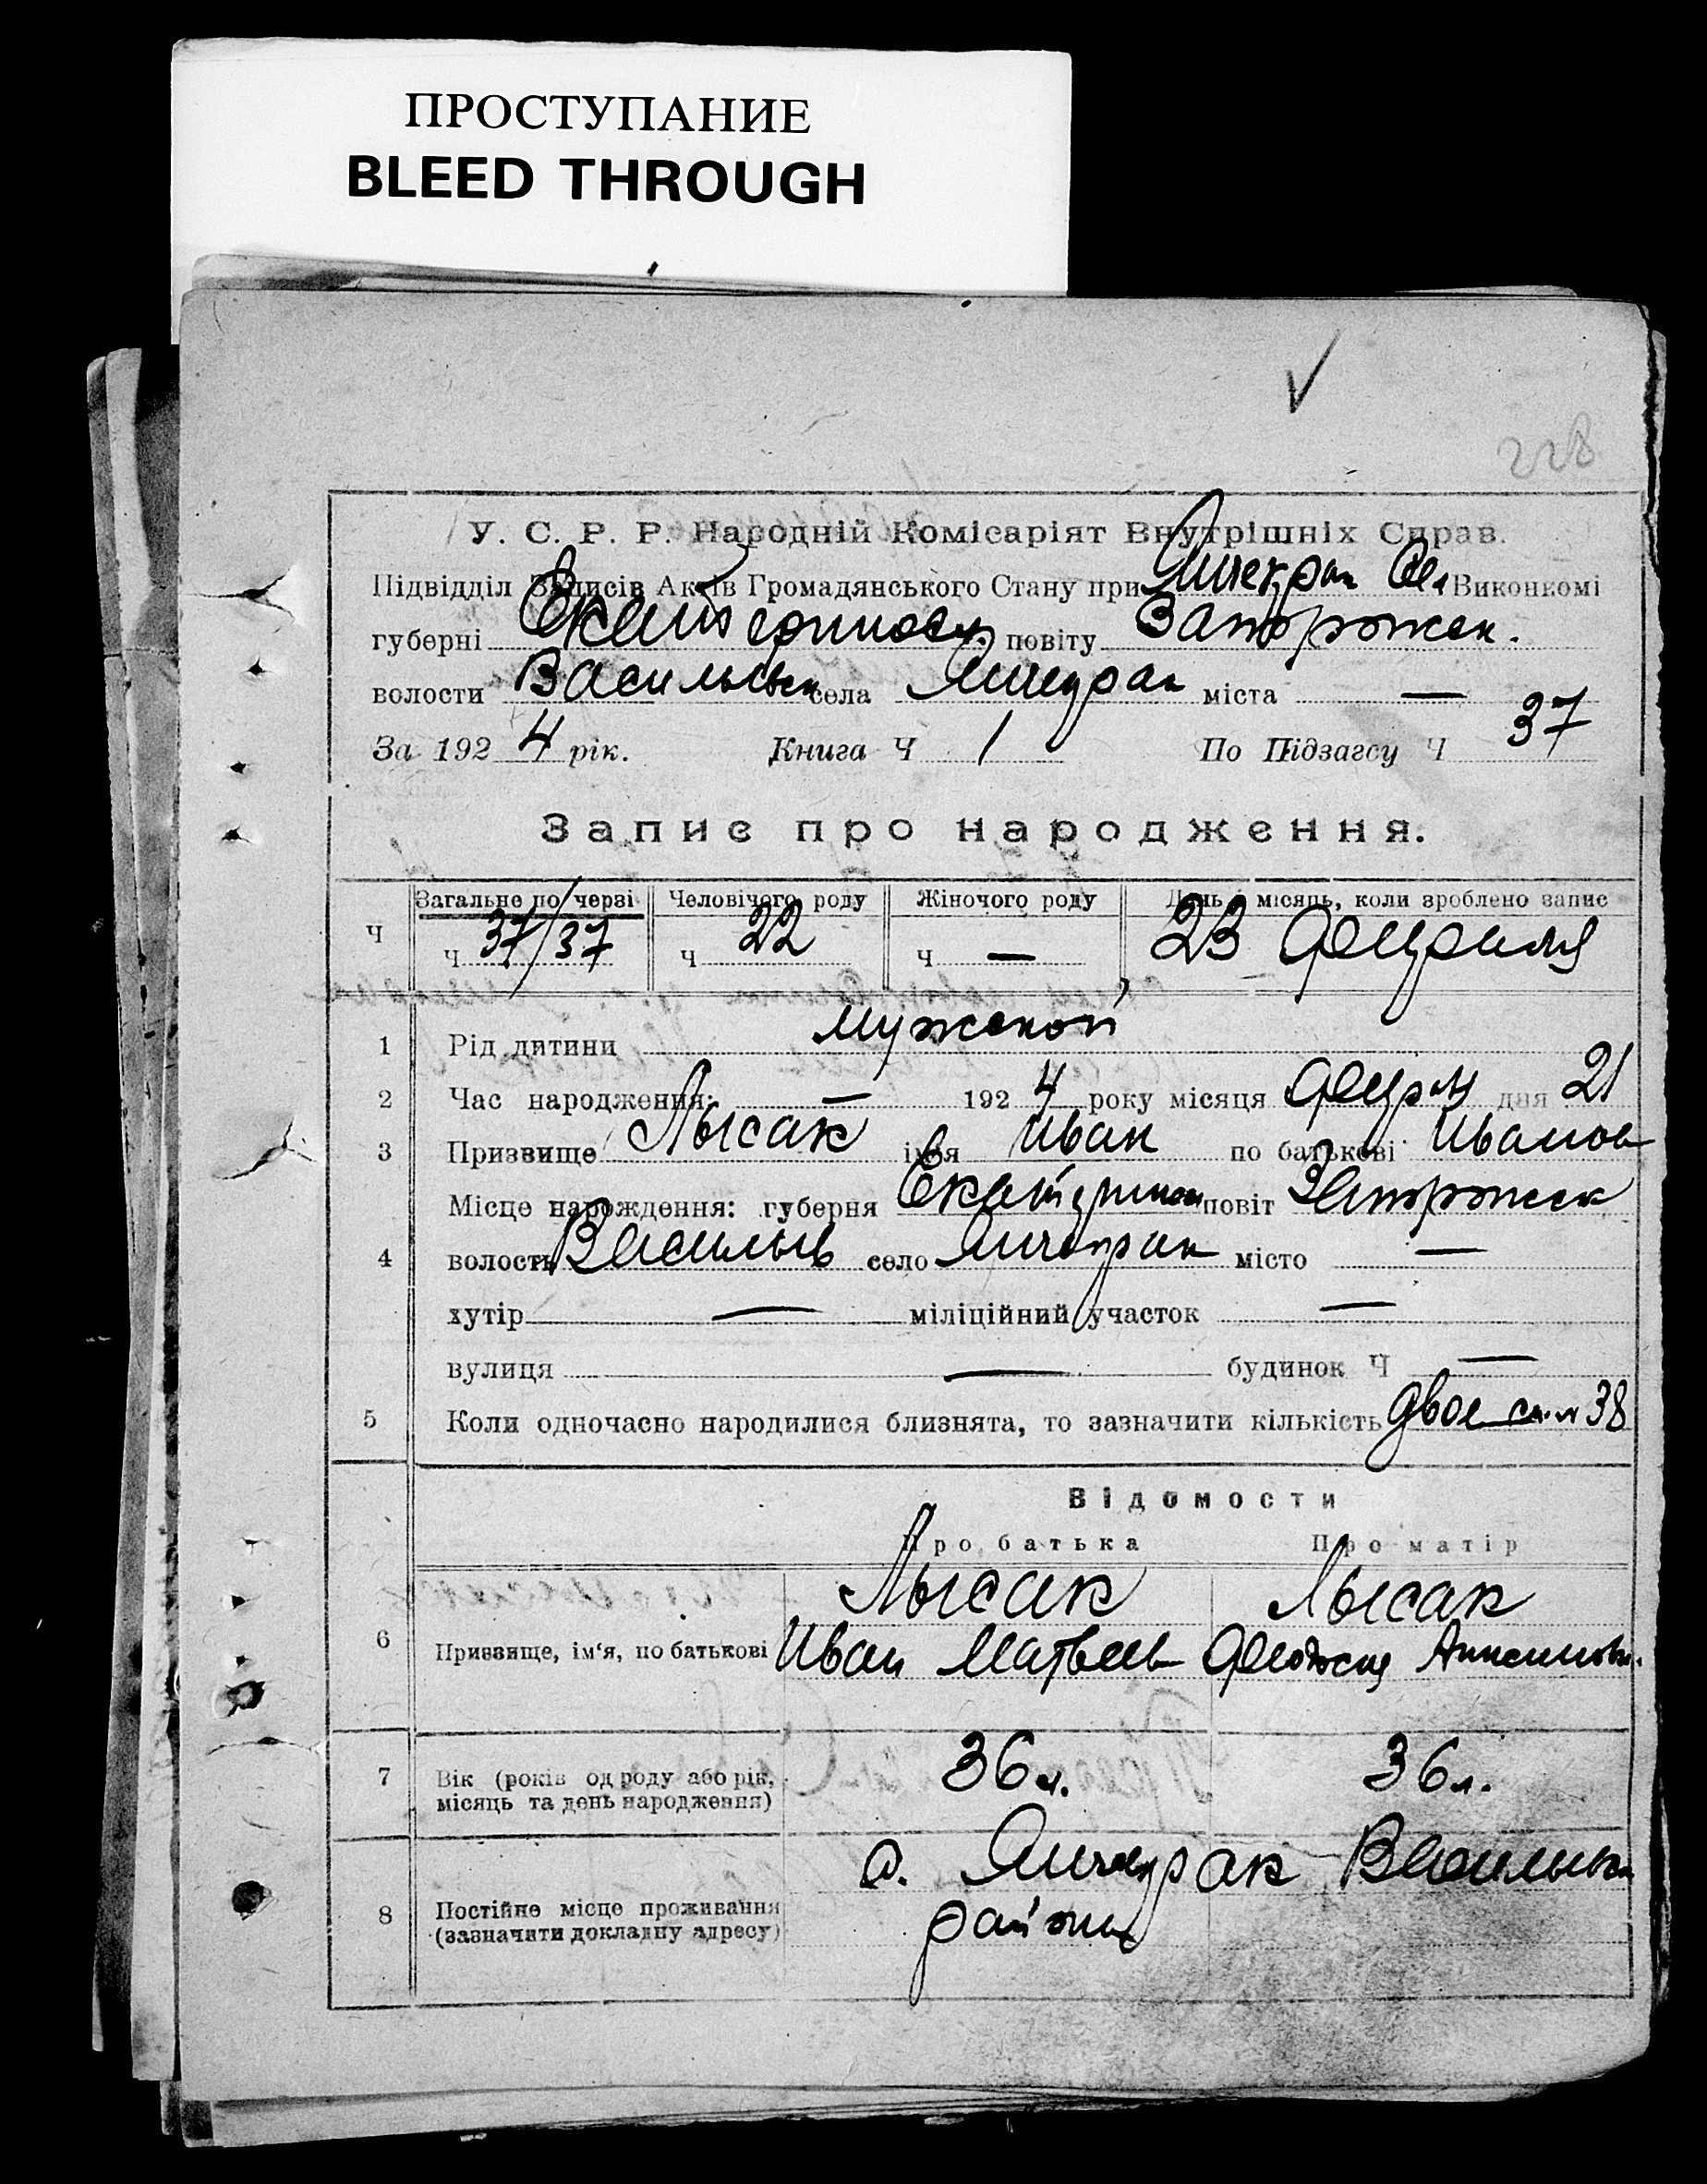 ПРОСТУПАНИЕ
BLEED THROUGH
228
У. С. Р. Р. Народній Комісаріят Внутрішніх Справ.
Підвідділ Записів Актів Громадянського Стану при Янчекрак Сел Виконкомі
губерні Екатериносл. повіту Запорожск.
волости Васильевск села Янчекрак міста —
За 192 4 рік. Книга Ч 1 По Підзагсу Ч 37
Запис про народження.
Ч Загальне по черзі Ч 37/37 Человічого роду Ч 22 Жіночого роду Ч — День і місяць, коли зроблено запис 23 февраля
1 Рід дитини мужской
2 Час народження: — 192 4 року місяця февр дня 21
3 Призвище Лысак ім'я Иван по батькові Иванов
Місце народження: губерня Екатеринос повіт Запорожск
4 волость Васильев село Янчекрак місто —
хутір — міліційний участок —
вулиця — будинок Ч —
5 Коли одночасно народилися близнята, то зазначити кількість двое 38
Відомости
Про батька Про матір
Лысак Лысак
6 Призвище, ім'я, по батькові Иван Матвеев Анисимовн.
7 Вік (років од роду або рік, 36 л. 36 л.
місяць та день народження)
с. Янчекрак Васильевск
8 Постійне місце проживання района
(зазначити докладну адресу)